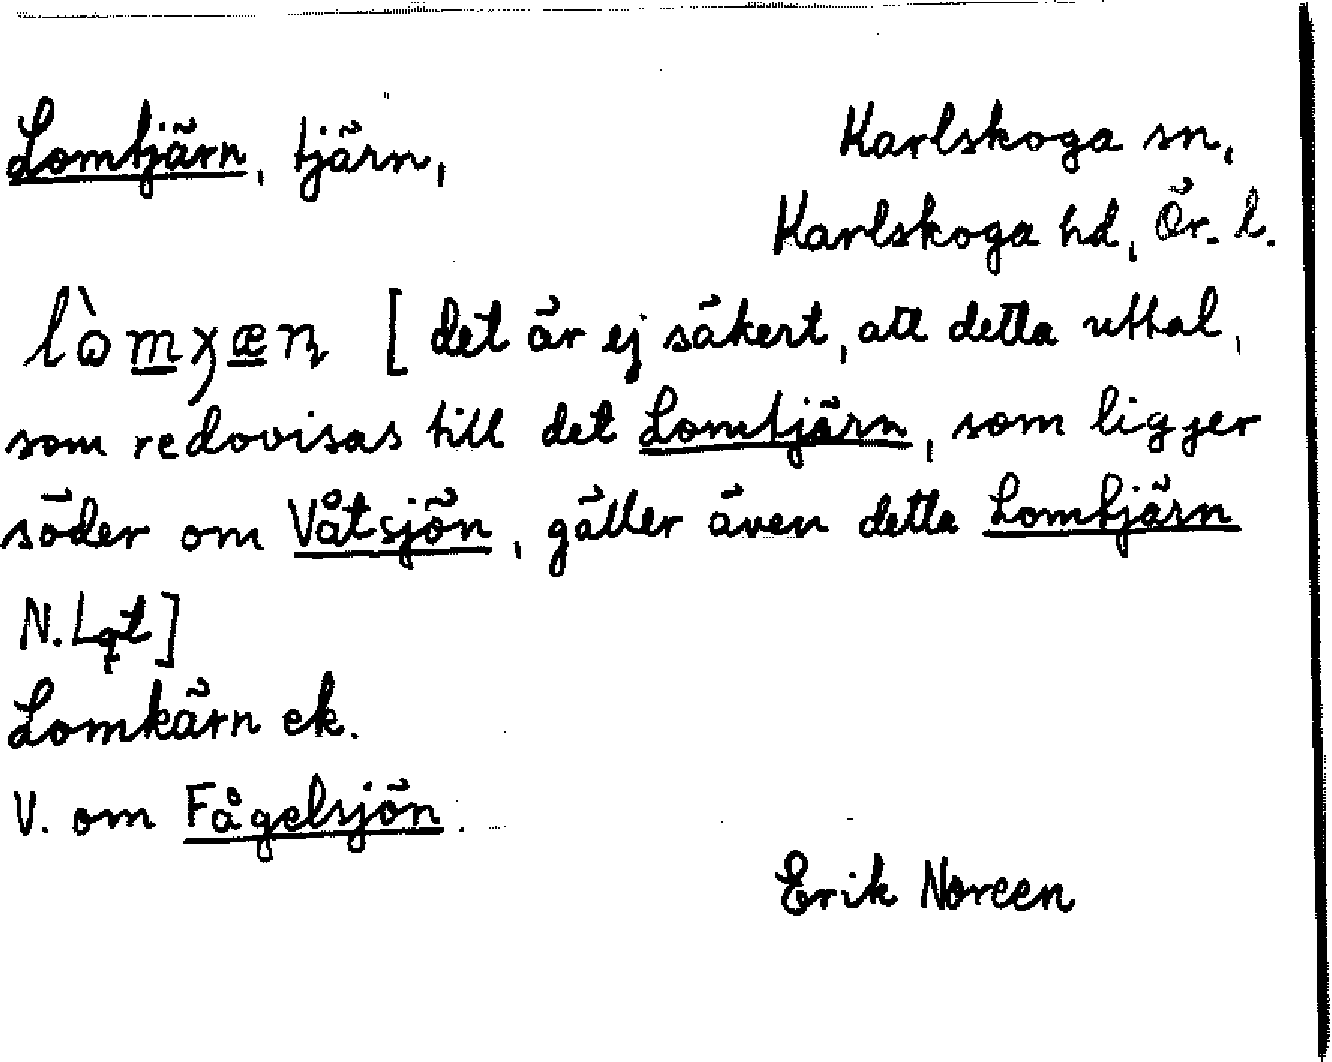 Lomtjärn, tjärn,
Karlskoga sn,
Karlskoga hd, Ör. l.
[det är ej säkert, att detta uttal,
som redovisas till det Lomtjärn, som ligger
söder om Våtsjön, gäller även detta Lomtjärn
N. Lqt]
Lomkärn ek.
V. om Fågelsjön.
Erik Noreen